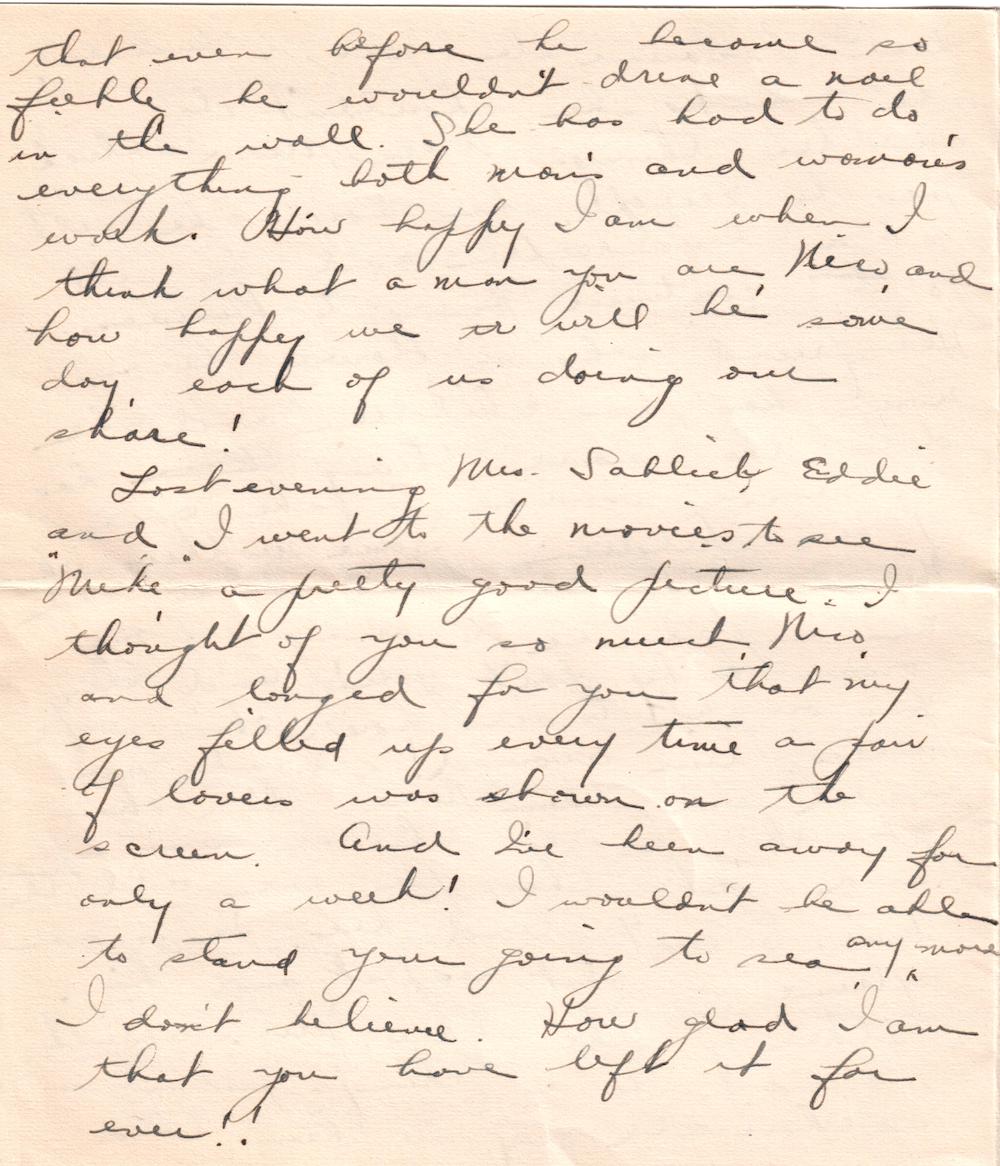 that even before he became so
feeble he wouldn't drive a nail
in the wall. She has had to do
everything both man's and woman's
work. How happy I am when I
think what a man you are Nico and
how happy we will be some
day, each of us doing our
share!
Last evening Mrs. Sablich, Eddie
and I went to the movies to see
"Mike" a pretty good picture. I
thought of you so much, Nico,
and longed for you that my
eyes filled up every time a pair
of lovers was shown on the
screen. And I've been away for
only a week! I wouldn't be able
to stand your going to sea any more,
I don't believe. How glad I am
that you have left it for
ever!!